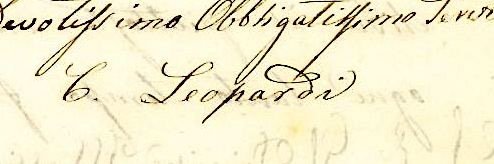 Devotissimo Obbligatissimo Serv
C. Leopardi